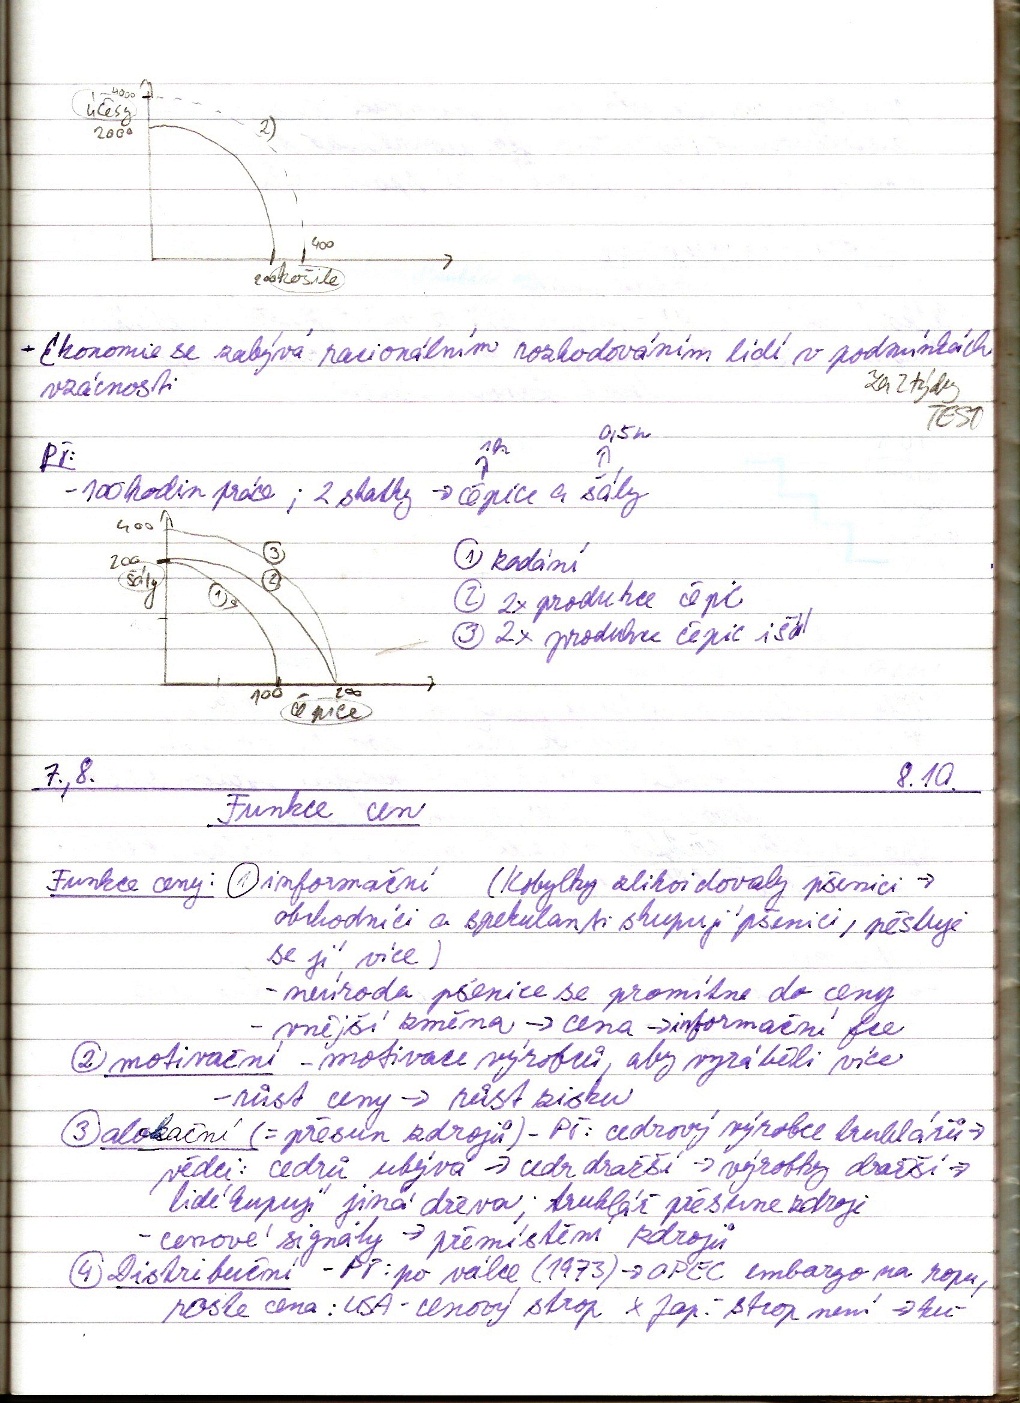 4000
účesy
2000
2)
400
200
košile
- Ekonomie se zabývá racionálním rozhodováním lidí v podmínkách
vzácnosti
Za 2 týdny
TEST
1h
0,5h
Př:
- 100 hodin práce ; 2 statky → čepice a šály
400
200
šály
3
2
1
100
200
čepice
① zadání
② 2x produkce čepic
③ 2x produkce čepic i šál
7., 8.
8.10.
Funkce cen
Funkce ceny: ① informační (Kobylky zlikvidovaly pšenici →
obchodníci a spekulanti skupují pšenici, pěstuje
se jí více)
- neúroda pšenice se promítne do ceny
- vnější změna → cena → informační fce
② motivační - motivace výrobců, aby vyráběli více
- růst ceny → růst zisku
③ alokační (= přesun zdrojů) - Př: cedrový výrobce truhlářů →
vědci: cedrů ubývá → cedr dražší → výrobky dražší →
lidé kupují jiná dřeva; truhlář přesune zdroje
- cenové signály → přemístění zdrojů
④ Distribuční - Př: po válce (1973) → OPEC embargo na ropu,
roste cena : USA - cenový strop x Jap. - strop není →